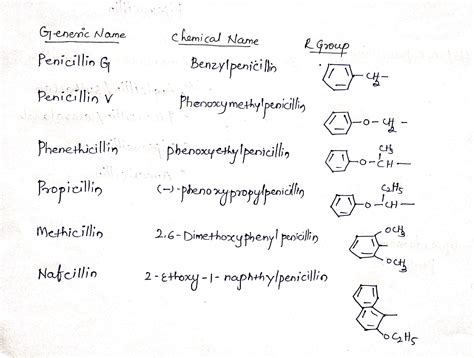 Generic Name Chemical Name R Group
Penicillin G Benzylpenicillin -CH2-
Penicillin V Phenoxymethylpenicillin -O-CH2-
Phenethicillin phenoxyethylpenicillin -O-CH- CH3
Propicillin (-)-phenoxypropylpenicillin -O-CH- C2H5
Methicillin 2,6-Dimethoxyphenyl penicillin OCH3 OCH3
Nafcillin 2-Ethoxy-1-naphthylpenicillin OC2H5